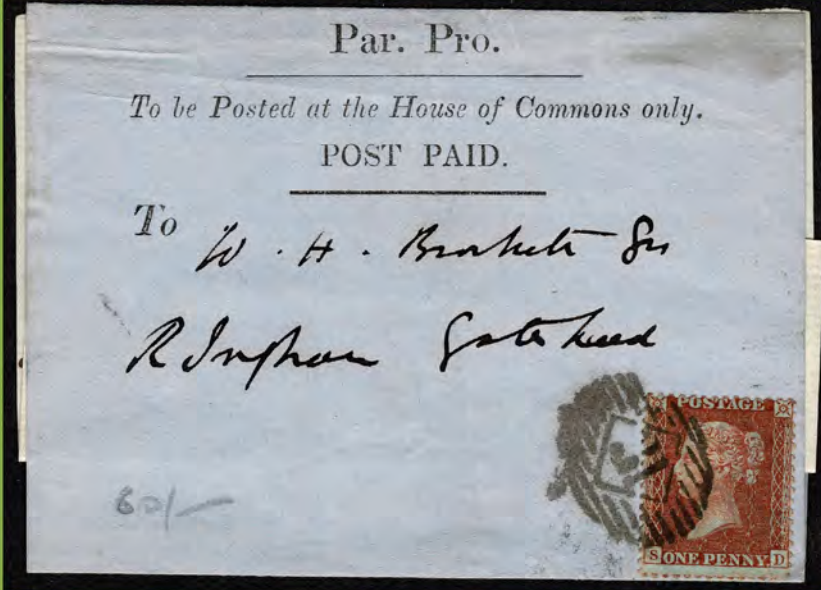 Par. Pro.
To be Posted at the House of Commons only.
POST PAID.
To
W. H. Brockett
R Ingham Gateshead
60/-
POSTAGE
S ONE PENNY. D